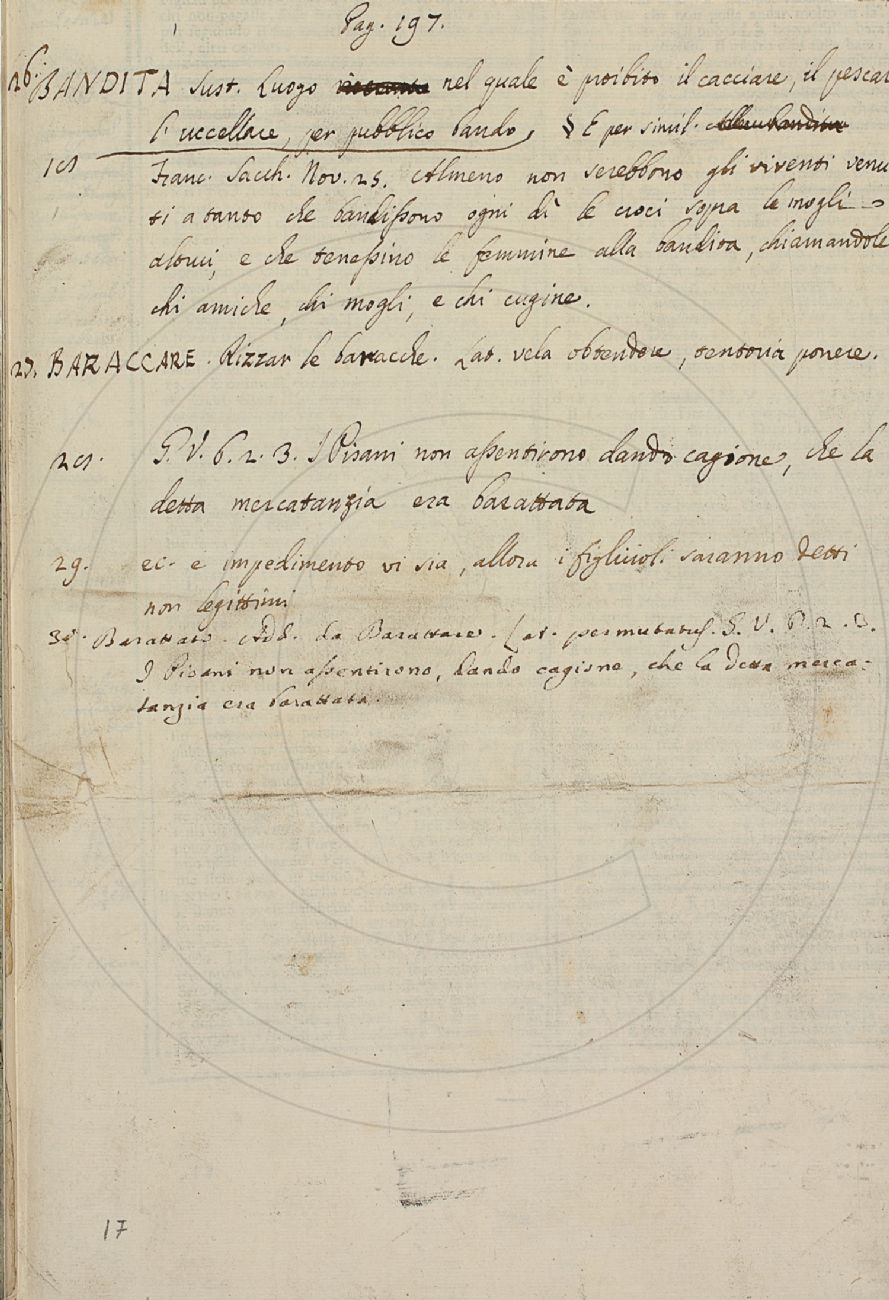 Pag. 197.
26. BANDITA Sust. Luogo nel quale è proibito il cacciare, il pescar
l'uccellare, per pubblico bando, § E per simil.
Franc. Sacch. Nov. 25. Almeno non serebbono gli viventi venu
ti a tanto che bandissono ogni dì le croci sopra le mogli
altrui, e che tenessino le femmine alla bandita, chiamandole
chi amiche, chi mogli, e chi cugine.
27. BARACCARE. Rizzar le baracche. Lat. vela obtendere, tentoria ponere.
G. V. 6. 2. 3. I Pisani non assentirono dando cagione, che la
detta mercatanzia era barattata
29. ec. e impedimento vi sia, allora i figliuoli saranno detti
non legittimi
Barattato. Add. da Barattare. Lat. permutatus. G. V. 6. 2. 3.
I Pisani non assentirono, dando cagione, che la detta merca-
tanzia era barattata.
17